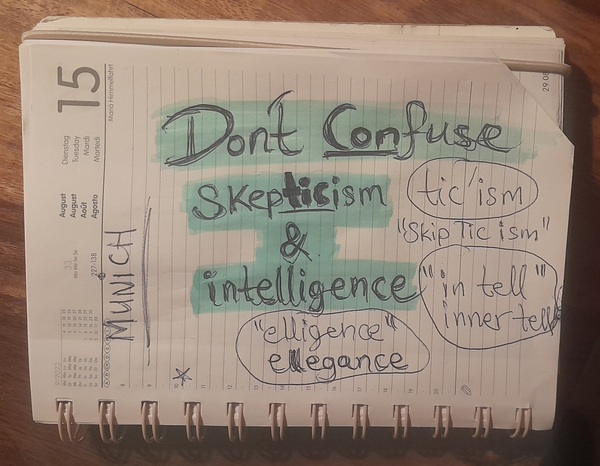 Don't Confuse
Skepticism
tic'ism
"Skip Tic ism"
&
intelligence
"in tell"
inner-tell
"elligence"
ellegance
MUNICH
15
Mariä Himmelfahrt
Dienstag
Tuesday
Mardi
Martedì
August
August
Août
Agosto
33
227/138